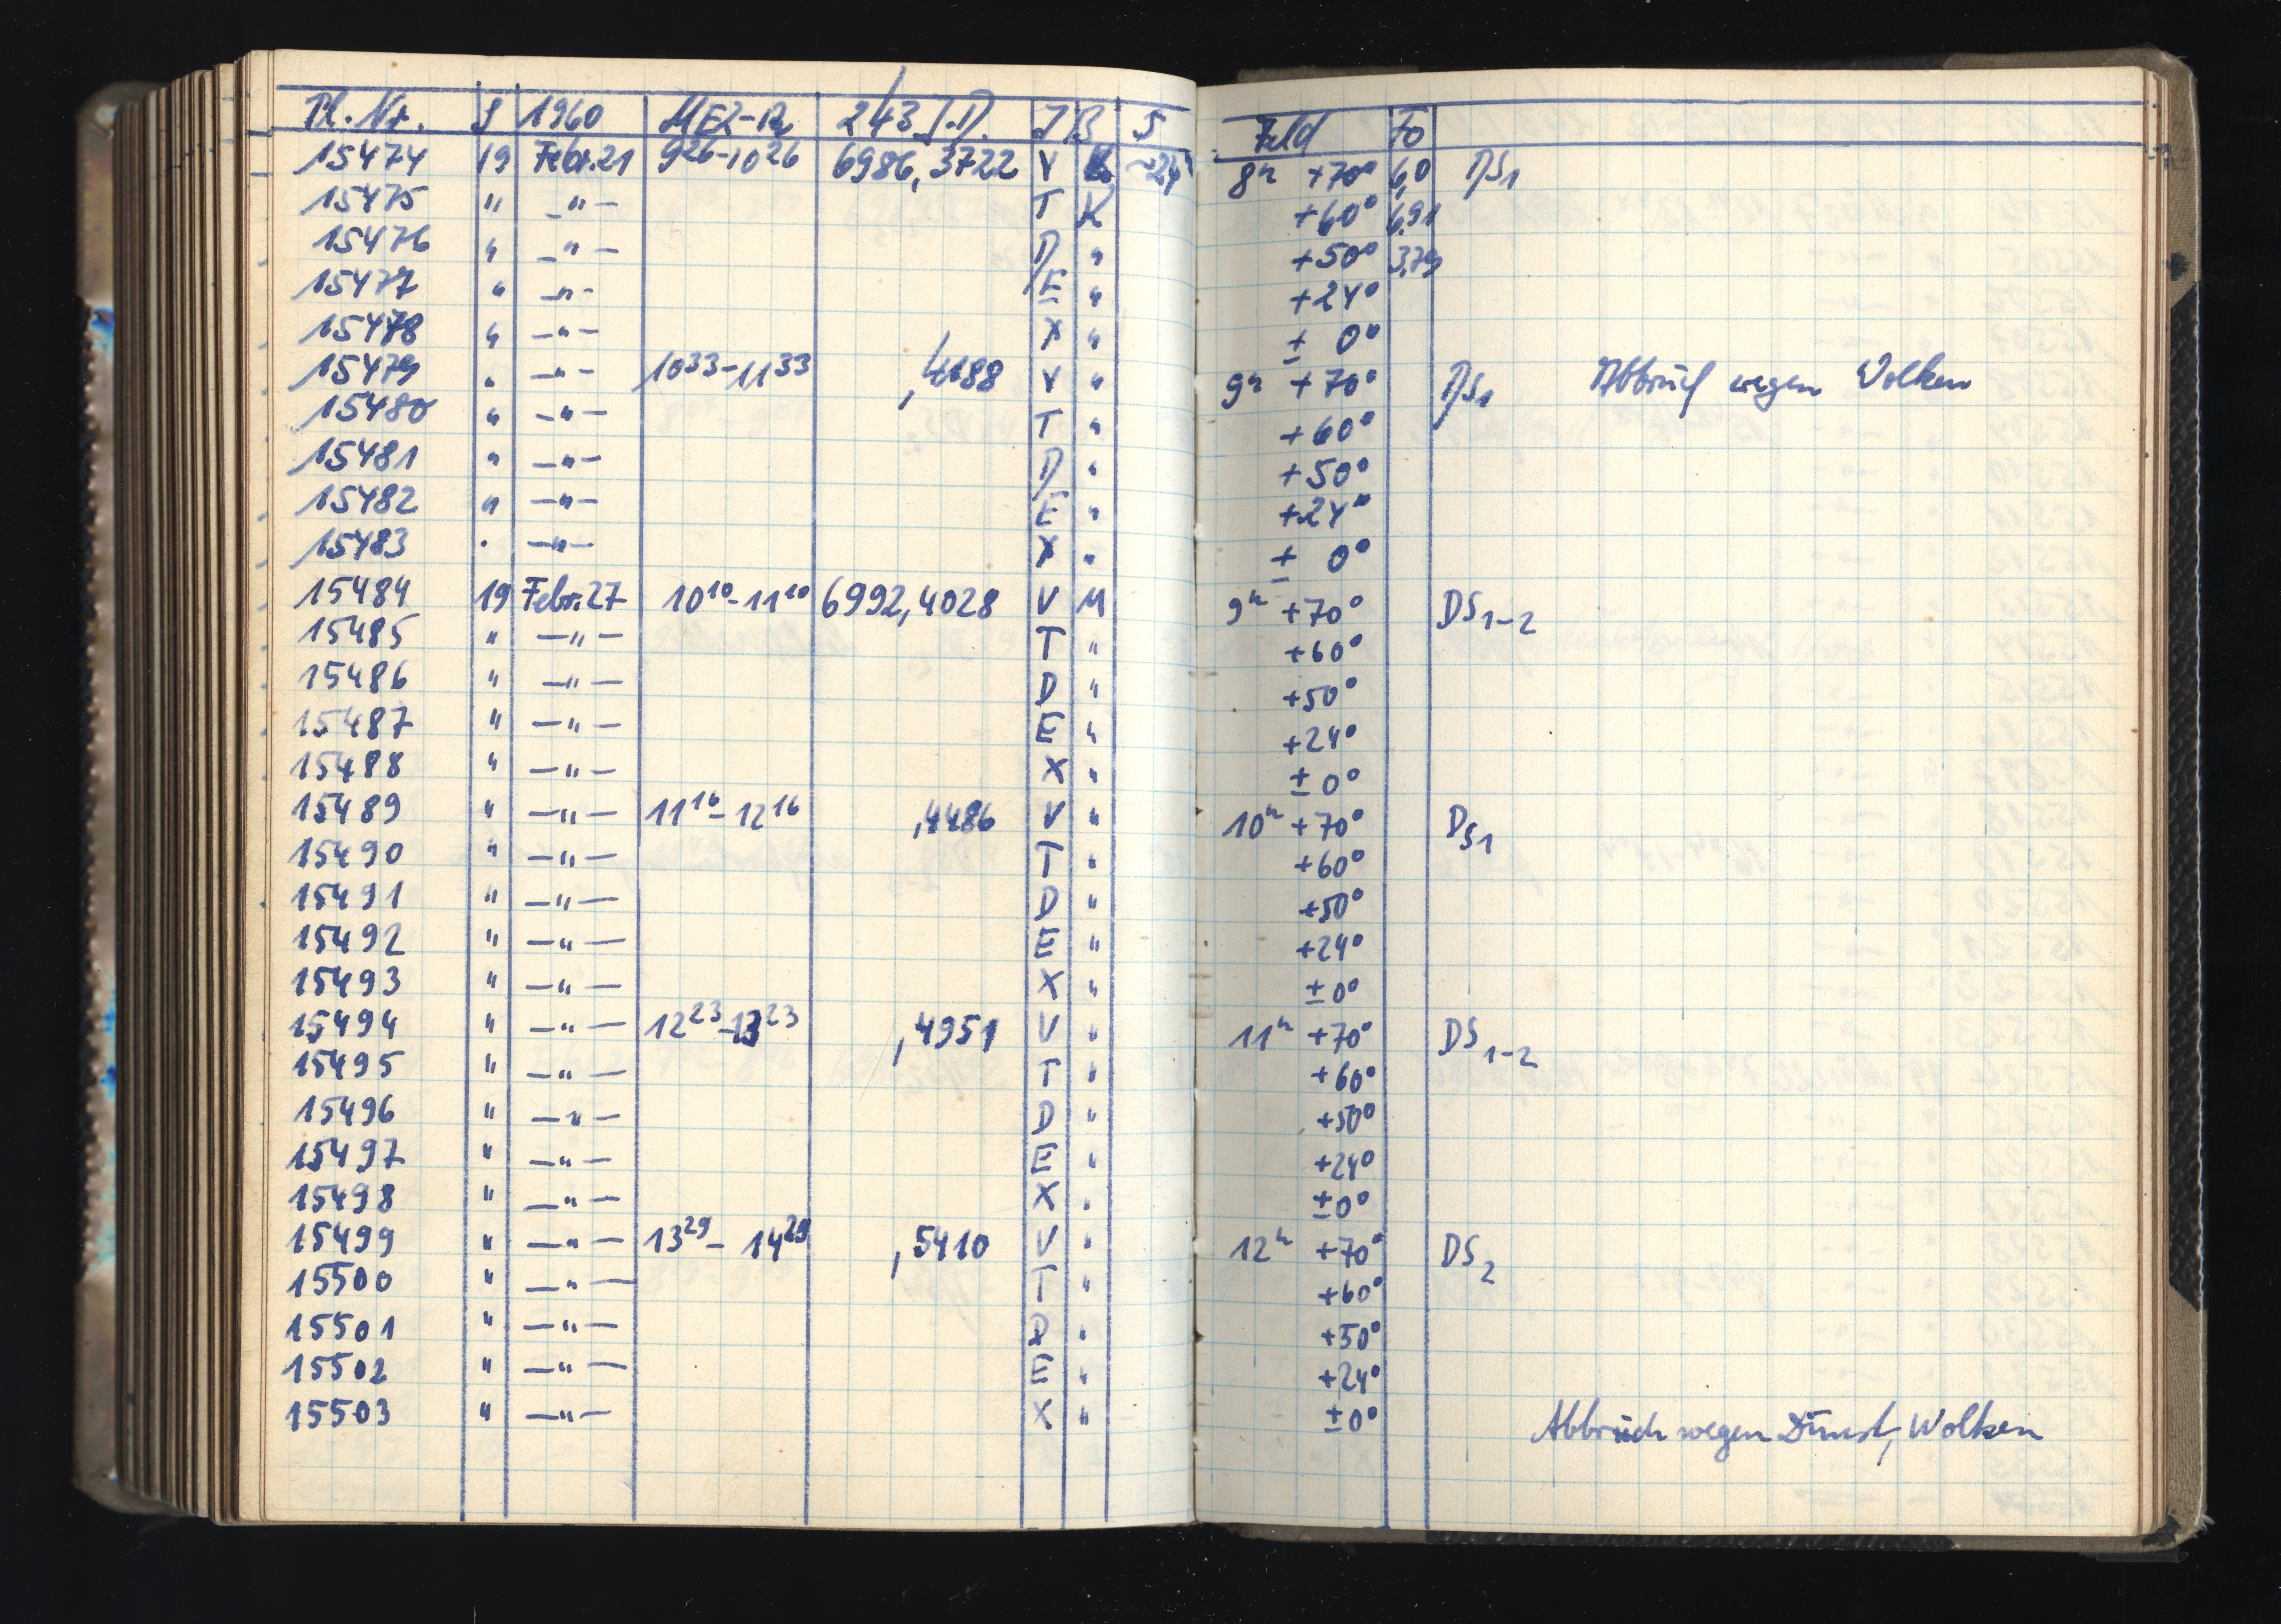 Pl. Nr. S 1960 MEZ-R 243 J.D. J B S Feld Fo
15474 19 Febr. 21 9²⁶-10²⁶ 6986,3722 V K ~24 8ʰ +70° 6,0 DS₁
15475 " -"- T K +60° 6,91
15476 " -"- D " +50° 3,79
15477 " -"- E " +24°
15478 " -"- X " ± 0°
15479 " -"- 10³³-11³³ ,4188 V " 9ʰ +70° DS₁ Abbruch wegen Wolken
15480 " -"- T " +60°
15481 " -"- D " +50°
15482 " -"- E " +24°
15483 " -"- X " ± 0°
15484 19 Febr. 27 10¹⁰-11¹⁰ 6992,4028 V M 9ʰ +70° DS₁₋₂
15485 " -"- T " +60°
15486 " -"- D " +50°
15487 " -"- E " +24°
15488 " -"- X " ±0°
15489 " -"- 11¹⁶-12¹⁶ ,4486 V " 10ʰ +70° DS₁
15490 " -"- T " +60°
15491 " -"- D " +50°
15492 " -"- E " +24°
15493 " -"- X " ±0°
15494 " -"- 12²³-13²³ ,4951 V " 11ʰ +70° DS₁₋₂
15495 " -"- T " +60°
15496 " -"- D " +50°
15497 " -"- E " +24°
15498 " -"- X " ±0°
15499 " -"- 13²⁹-14²⁹ ,5410 V " 12ʰ +70° DS₂
15500 " -"- T " +60°
15501 " -"- D " +50°
15502 " -"- E " +24°
15503 " -"- X " ±0°
Abbruch wegen Dunst, Wolken